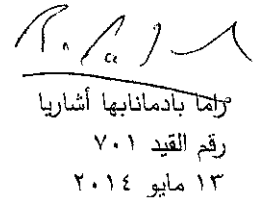 راما بادمانابها أشاريا
رقم القيد ٧٠١
١٣ مايو ٢٠١٤